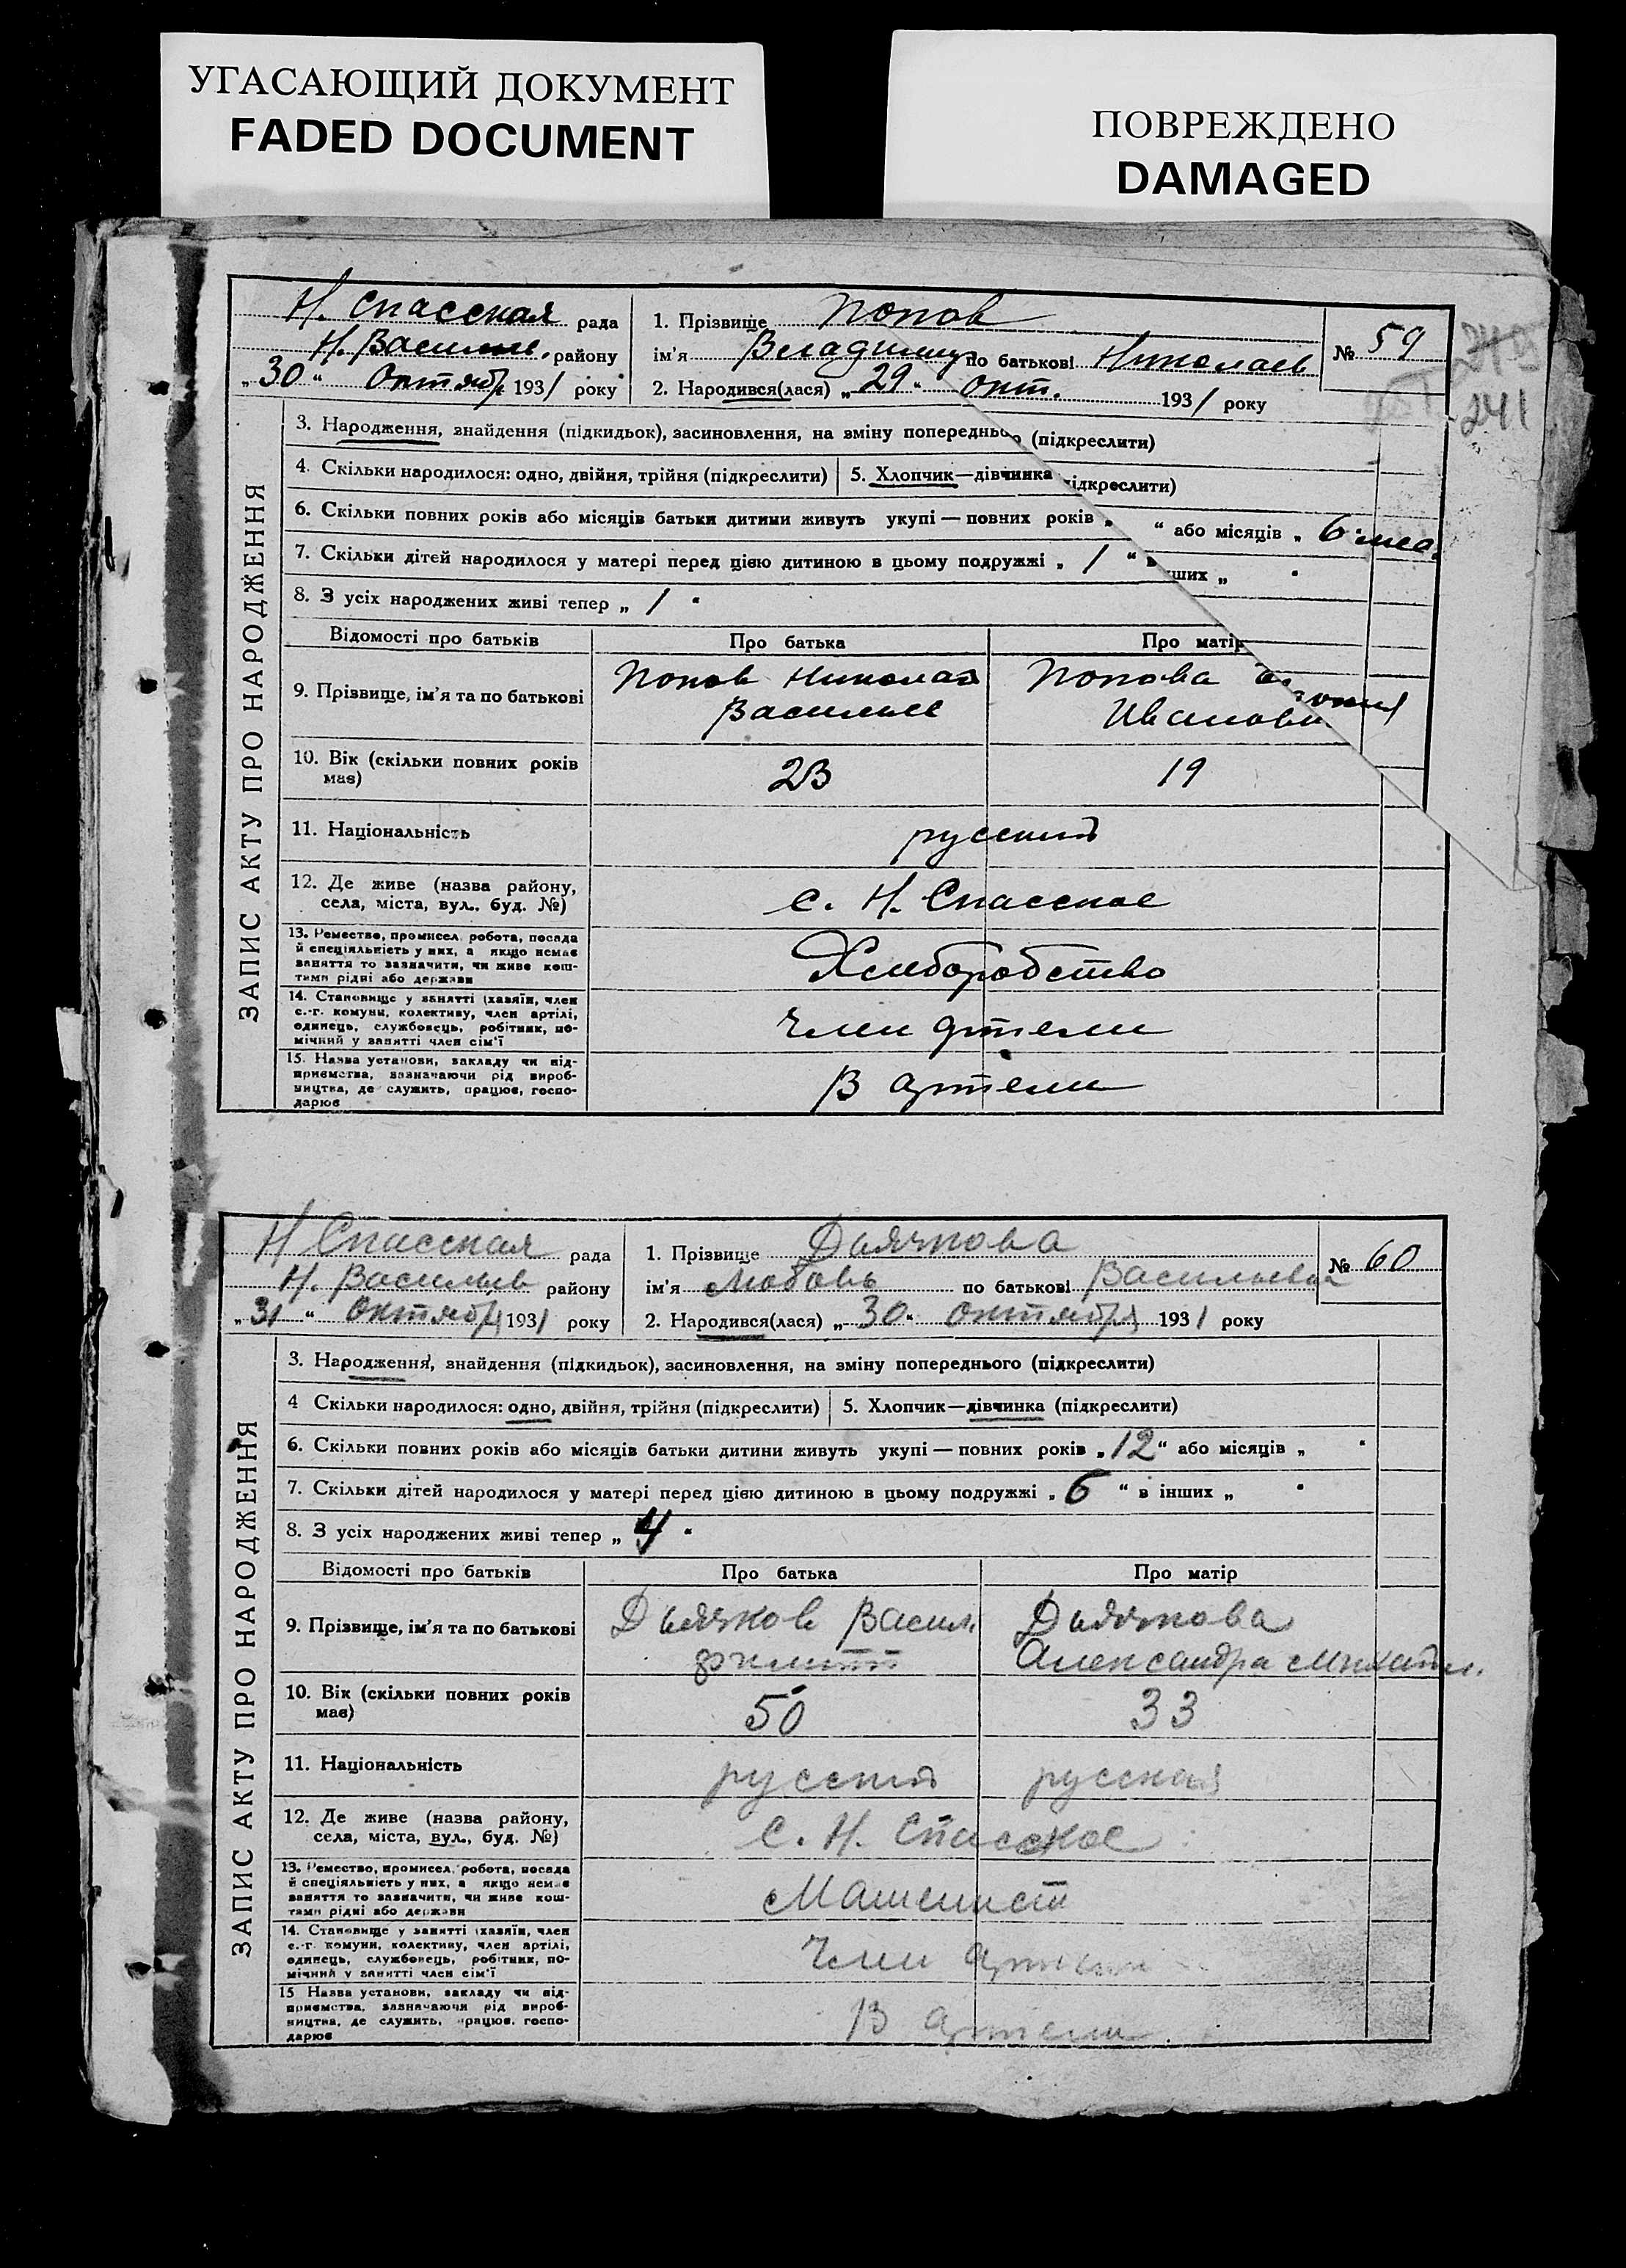 УГАСАЮЩИЙ ДОКУМЕНТ
FADED DOCUMENT
ПОВРЕЖДЕНО
DAMAGED
241
ЗАПИС АКТУ ПРО НАРОДЖЕННЯ
Н. Спасская рада
Н. Василье. району
„30“ Октябр 1931 року
1. Прізвище Попов
ім'я Владимир по батькові Николаев
2. Народився(лася) „29“ Окт. 1931 року
№ 59
3. Народження, знайдення (підкидьок), засиновлення, на зміну попереднього (підкреслити)
4. Скільки народилося: одно, двійня, трійня (підкреслити) 5. Хлопчик—дівчинка підкреслити)
6. Скільки повних років або місяців батьки дитини живуть укупі — повних років „ “ або місяців „ 6 меся.
7. Скільки дітей народилося у матері перед цією дитиною в цьому подружжі „ 1 “ в інших „
8. З усіх народжених живі тепер „ 1 “
Відомості про батьків Про батька Про матір
9. Прізвище, ім'я та по батькові Попов Николай Попова
Василье Иванов
10. Вік (скільки повних років має) 23 19
11. Національність русский
12. Де живе (назва району, села, міста, вул., буд. №) с. Н. Спасское
13. Ремество, промисел, робота, посада й спеціяльність у них, а якщо немає заняття то зазначити, чи живе коштами рідні або держави Хлиборобство
14. Становище у занятті (хазяїн, член с.-г. комуни, колективу, член артілі, одинець, службовець, робітник, помічний у занятті член сім'ї Член артели
15. Назва установи, закладу чи підприємства, зазначаючи рід виробництва, де служить, працює, господарює В артели
ЗАПИС АКТУ ПРО НАРОДЖЕННЯ
Н Спасская рада
Н. Васильев району
„31“ Октября 1931 року
1. Прізвище Дьячкова
ім'я Любовь по батькові Васильевна
2. Народився(лася) „30“ Октября 1931 року
№ 60
3. Народження, знайдення (підкидьок), засиновлення, на зміну попереднього (підкреслити)
4 Скільки народилося: одно, двійня, трійня (підкреслити) 5. Хлопчик—дівчинка (підкреслити)
6. Скільки повних років або місяців батьки дитини живуть укупі — повних років „12“ або місяців „ “
7. Скільки дітей народилося у матері перед цією дитиною в цьому подружжі „ 6 “ в інших „ “
8. З усіх народжених живі тепер „ 4 “
Відомості про батьків Про батька Про матір
9. Прізвище, ім'я та по батькові Дьячков Васил. Дьячкова
Филипп Александра Михайл.
10. Вік (скільки повних років має) 50 33
11. Національність русский русская
12. Де живе (назва району, села, міста, вул., буд. №) С. Н. Спасское
13. Ремество, промисел, робота, посада й спеціяльність у них, а якщо немає заняття то зазначити, чи живе коштами рідні або держави Машенист
14. Становище у занятті (хазяїн, член с.-г. комуни, колективу, член артілі, одинець, службовець, робітник, помічний у занятті член сім'ї Член артели
15 Назва установи, закладу чи підприємства, зазначаючи рід виробництва, де служить, працює, господарює В артели